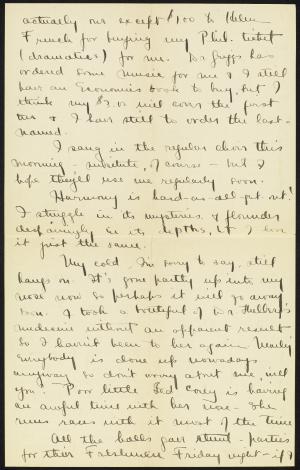 actually our except $1.00 to Helen
French for buying my Phil. ticket
(dramatics) for me. Dr Griggs has
ordered some music for me & I still
have an Economics book to buy, but I
think my $5.00 will cover the first
two & I have still to order the last-
named.
I sang in the regular choir this
morning - substitute, of course - but I
hope they'll use me regularly soon.
Harmony is hard-as-all-get-out!
I struggle in its mysteries & flounder
despairingly in its depths, but I love
it just the same.
My cold, I'm sorry to say, still
hangs on. It's gone partly up into my
nose now so perhaps it will go away
soon. I took a bottleful of Dr Thelberg's
medicine without an apparent result
so I haven't been to her again. Nearly
everybody is done up nowadays
anyway so don't worry about me, will
you. Poor little Corey is having
an awful time with her nose - she
runs races with it most of the time
All the halls gave stunt-parties
for their Freshmen Friday night - if I